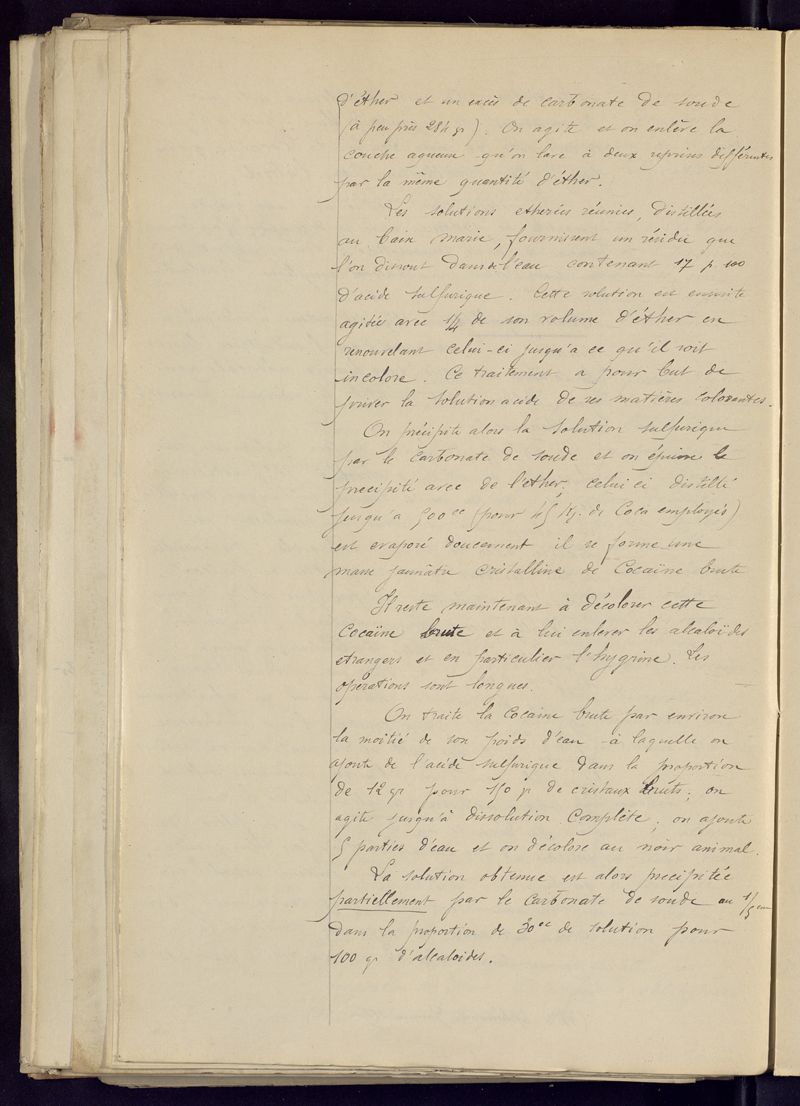 d'éther et un excès de carbonate de soude
(à peu près 284 gr). On agite et on enlève la
couche aqueuse qu'on lave à deux reprises différentes
par la même quantité d'éther.
Les solutions etherées réunies, distillées
au bain marie, fournissent un résidu que
l'on dissout dans de l'eau contenant 17 p 100
d'acide sulfurique. Cette solution est ensuite
agitée avec 1/4 de son volume d'éther en
renouvelant celui-ci jusqu'a ce qu'il soit
incolore. Ce traitement a pour but de
priver la solution acide de ses matières colorantes.
On précipite alors la solution sulfurique
par le carbonate de soude et on épuise le
precipité avec de l'ether; celui ci distillé
jusqu'a 500cc (pour 25 Kg. de Coca employés)
est evaporé doucement il se forme une
masse jaunâtre cristalline de Cocaïne brute
Il reste maintenant à décolorer cette
Cocaïne brute et à lui enlever les alcaloïdes
etrangers et en particulier l'hygrine. Les
opérations sont longues.
On traite la Cocaïne brute par environ
la moitié de son poids d'eau à laquelle on
ajoute de l'acide sulfurique dans la proportion
de 12 gr pour 150 gr de cristaux bruts; on
agite jusqu'à dissolution complète; on ajoute
5 parties d'eau et on décolore au noir animal.
La solution obtenue est alors precipitée
partiellement par le carbonate de soude au 1/5em
dans la proportion de 30cc de solution pour
100 gr d'alcaloides.